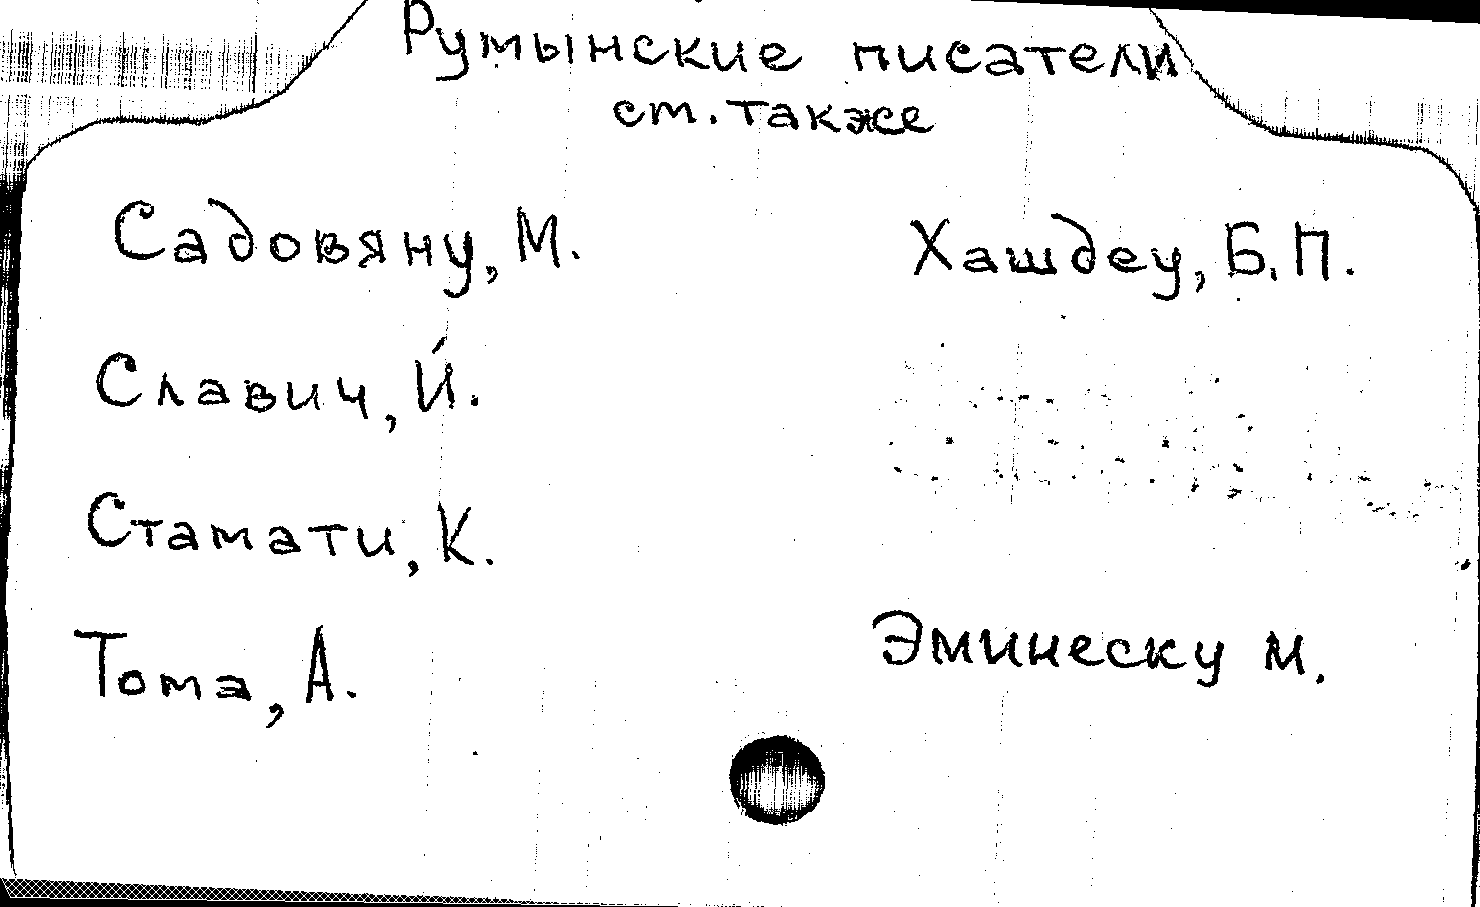 Румынские писатели
ст. также
Садовяну, М.
Славич, И.
Стамати, К.
Тома, А.
Хашдеу, Б.П.
Эминеску М.